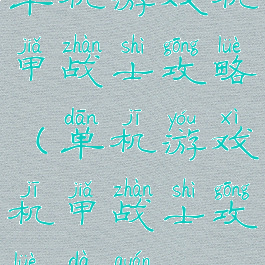 jiǎ zhàn shì gōng lüè
甲战士攻略
dān jī yóu xì
（单机游戏
jī jiǎ zhàn shì gōng
机甲战士攻